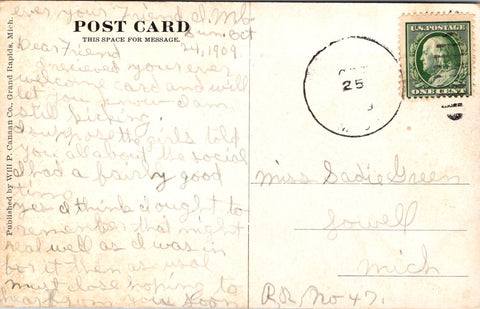 ever your Friend
POST CARD
THIS SPACE FOR MESSAGE.
Sun Oct
24, 1909.
Dear Friend
I recieved your ever
welcome card and will
let you know I am
still kicking.
I suppose the girls told
you all about the social
I had a fairly good
time
yes I think I ought to
remember that night
real well as I was in
for it then as usal
must close hoping to
hear from you soon
Published by Will P. Canaan Co., Grand Rapids, Mich.
25
U.S. POSTAGE
ONE CENT
Miss Sadie Green
Lowell
Mich
R.R. No 47.